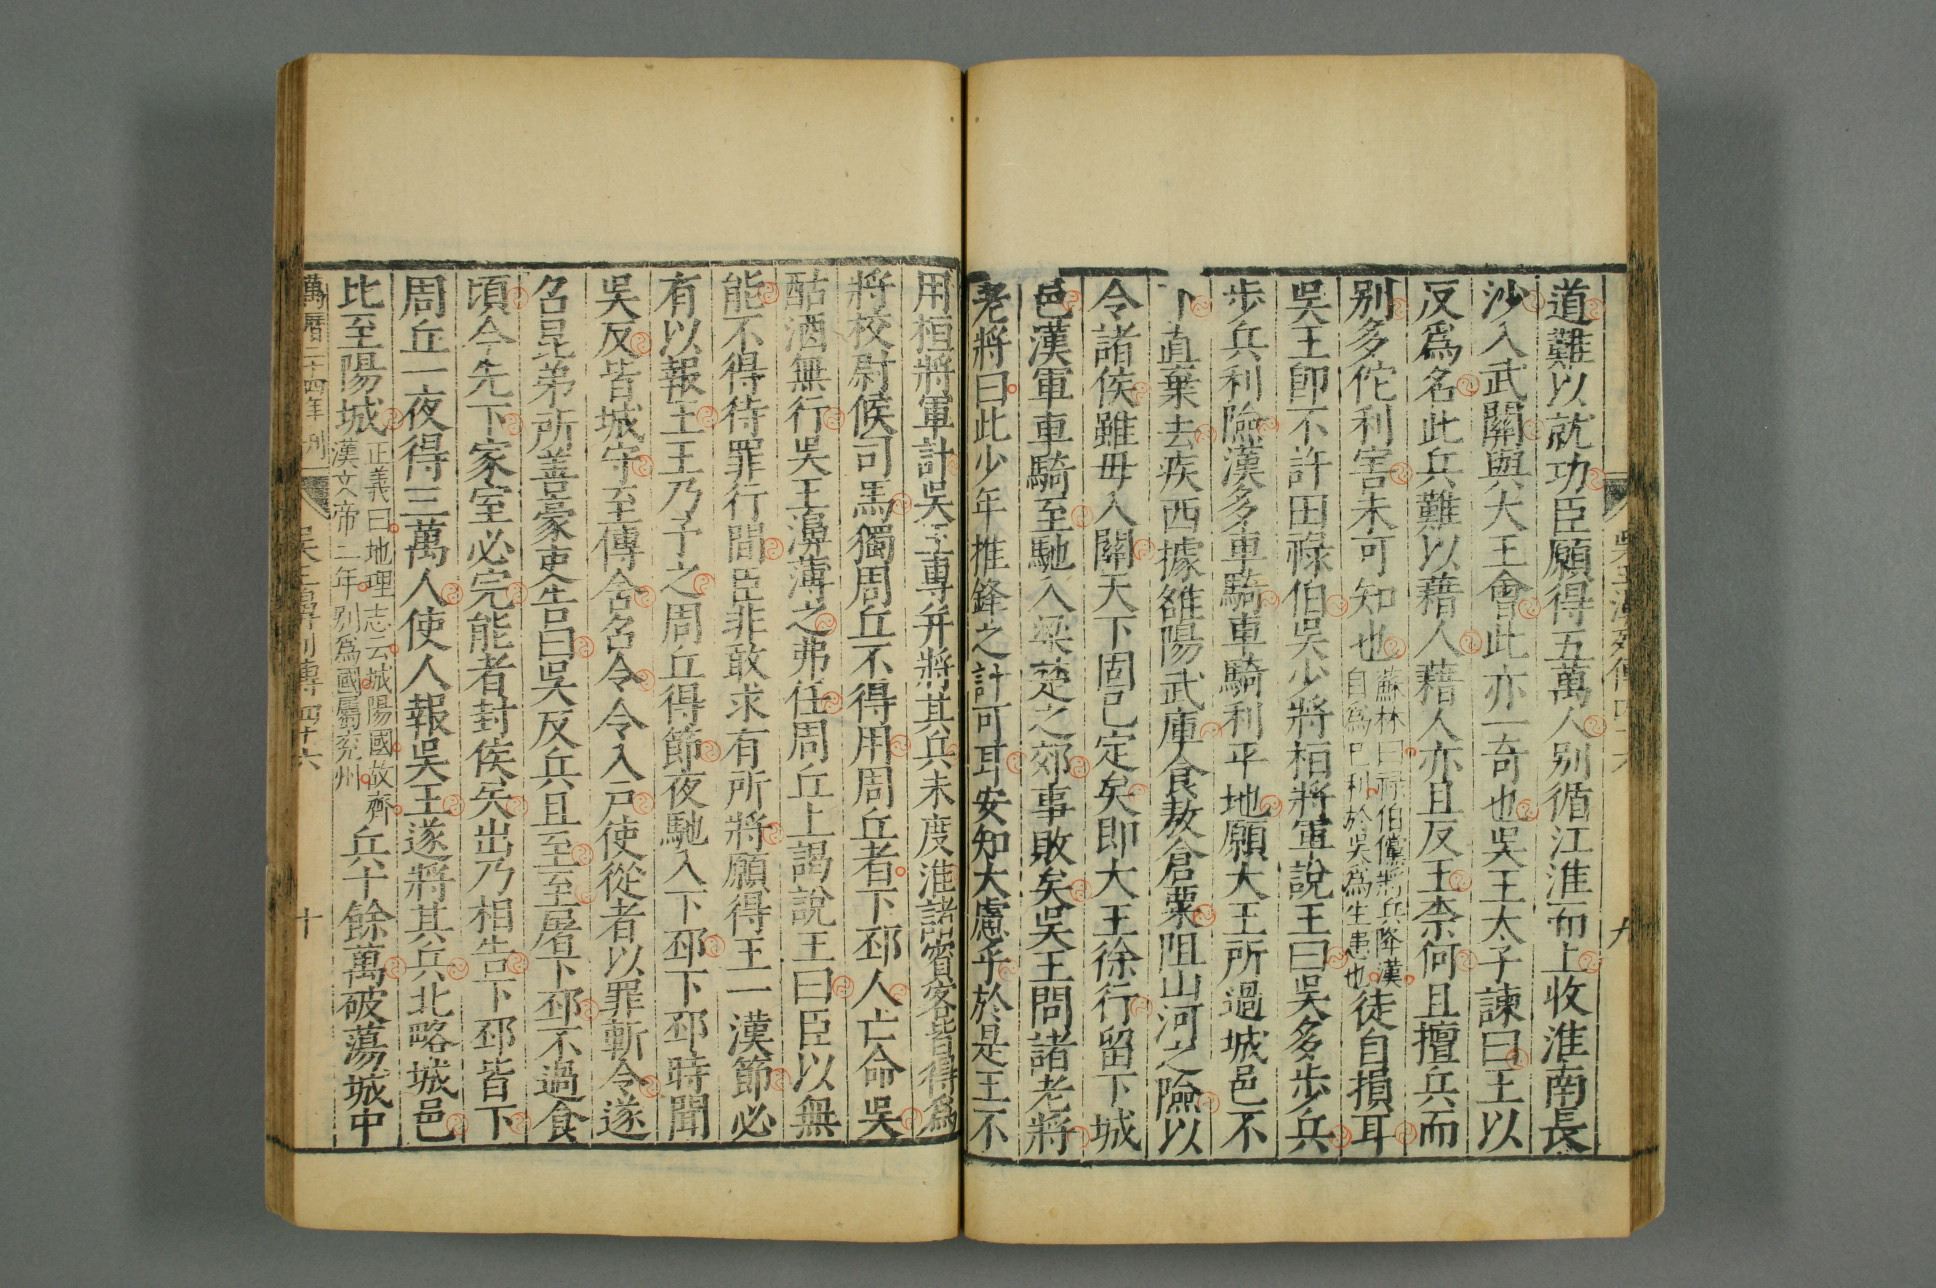 道難以就功臣願得五萬人别循江淮而上收淮南長
沙入武關與大王會此亦一奇也吳王太子諫曰王以
反爲名此兵難以藉人藉人亦且反王柰何且擅兵而
别多佗利害未可知也
蘇林曰祿伯儻將兵降漢
自爲己利於吳爲生患也
徒自損耳
吳王卽不許田祿伯吳少將桓將軍說王曰吳多步兵
步兵利險漢多車騎車騎利平地願大王所過城邑不
下直棄去疾西據雒陽武庫食敖倉粟阻山河之險以
令諸侯雖毋入關天下固已定矣即大王徐行留下城
邑漢軍車騎至馳入梁楚之郊事敗矣吳王問諸老將
老將曰此少年推鋒之計可耳安知大慮乎於是王不
九
用桓將軍計吳王專并將其兵未度淮諸賓客皆得爲
將校尉候司馬獨周丘不得用周丘者下邳人亡命吳
酤酒無行吳王濞薄之弗任周丘上謁說王曰臣以無
能不得待罪行間臣非敢求有所將願得王一漢節必
有以報王王乃予之周丘得節夜馳入下邳下邳時聞
吳反皆城守至傳舍召令令入戸使從者以罪斬令遂
召昆弟所善豪吏告曰吳反兵且至至屠下邳不過食
頃今先下家室必完能者封侯矣出乃相告下邳皆下
周丘一夜得三萬人使人報吳王遂將其兵北略城邑
比至陽城
正義曰地理志云城陽國故齊
漢文帝二年别爲國屬兖州
兵十餘萬破陽城中
萬曆二十四年刊
吳王濞列傳四十六
十